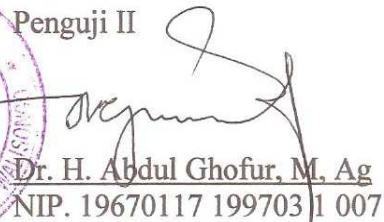 Penguji II
Dr. H. Abdul Ghofur, M, Ag
NIP. 19670117 199703 1 007